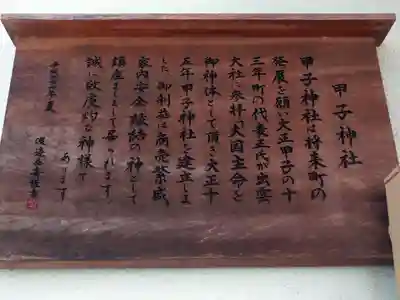 甲子神社
甲子神社は将来町の
発展を願い大正甲子の十
三年町の代表正氏が出雲
大社に参拝大国主命を
御神体として頂き大正十
五年甲子神社を建立しま
した 御利益は商売繁盛
家内安全縁結の神として
鎮座ましまして居られます
誠に故慶的な神様で
あります
平成二十一年夏